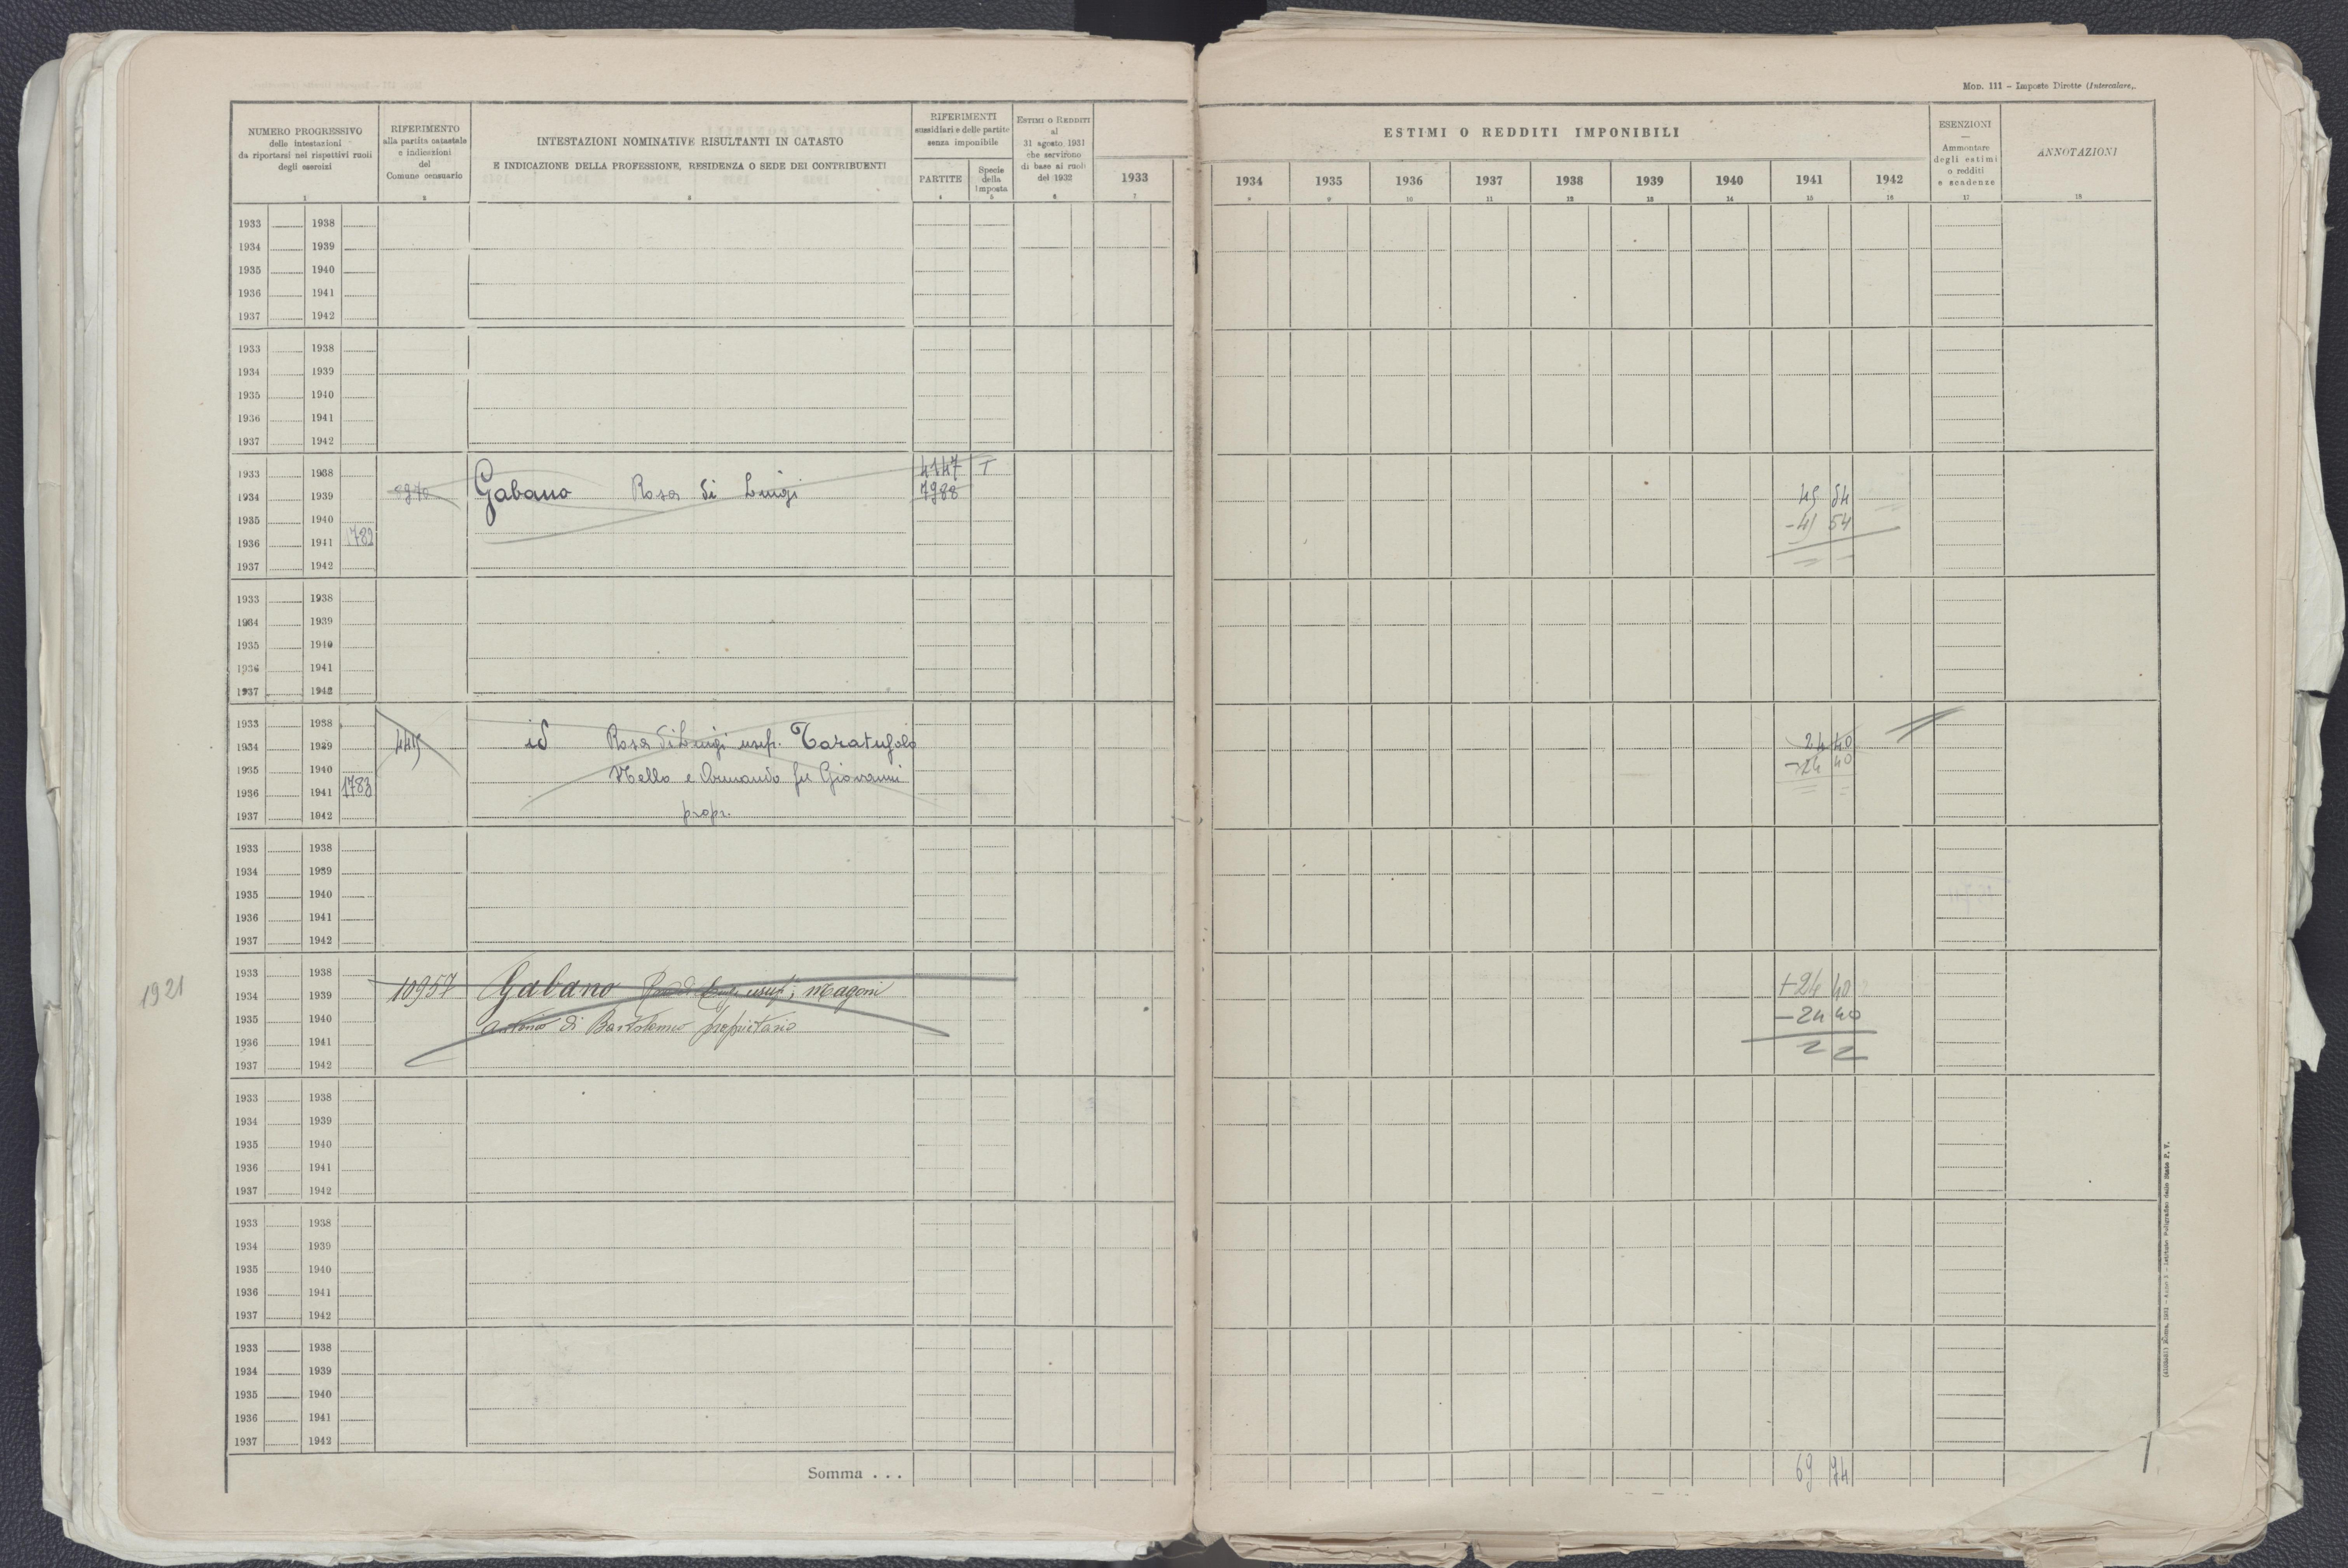 MOD. 111 – Imposte Dirette (Intercalare).
NUMERO PROGRESSIVO
delle intestazioni
da riportarsi nei rispettivi ruoli
degli esercizi
RIFERIMENTO
alla partita catastale
e indicazioni
del
Comune censuario
INTESTAZIONI NOMINATIVE RISULTANTI IN CATASTO
E INDICAZIONE DELLA PROFESSIONE, RESIDENZA O SEDE DEI CONTRIBUENTI
RIFERIMENTI
sussidiari e delle partite
senza imponibile
PARTITE
Specie
della
imposta
ESTIMI O REDDITI
al
31 agosto 1931
che servirono
di base ai ruoli
del 1932
ESTIMI O REDDITI IMPONIBILI
1933 1934 1935 1936 1937 1938 1939 1940 1941 1942
ESENZIONI
—
Ammontare
degli estimi
o redditi
e scadenze
ANNOTAZIONI
1 2 3 4 5 6 7 8 9 10 11 12 13 14 15 16 17 18
1933 1938
1934 1939
1935 1940
1936 1941
1937 1942
1933 1938
1934 1939
1935 1940
1936 1941
1937 1942
1933 1938 4147 T
1934 1939 Gabano Rosa di Luigi 7988
1935 1940
1936 1941 1782
1937 1942
1933 1938
1934 1939
1935 1940
1936 1941
1937 1942
1933 1938
1934 1939 id Rosa di Luigi usuf. Taratufolo 24 40
1935 1940 Nello e Armando fu Giovanni -24 40
1936 1941 1783
1937 1942 propr.
1933 1938
1934 1939
1935 1940
1936 1941
1937 1942
1933 1938
1921 1934 1939 10957 Gabano usuf; Magoni +24 40
1935 1940 Antonio di Bartolomeo proprietario -24 40
1936 1941
1937 1942
1933 1938
1934 1939
1935 1940
1936 1941
1937 1942
1933 1938
1934 1939
1935 1940
1936 1941
1937 1942
1933 1938
1934 1939
1935 1940
1936 1941
1937 1942
Somma . . . 69 94